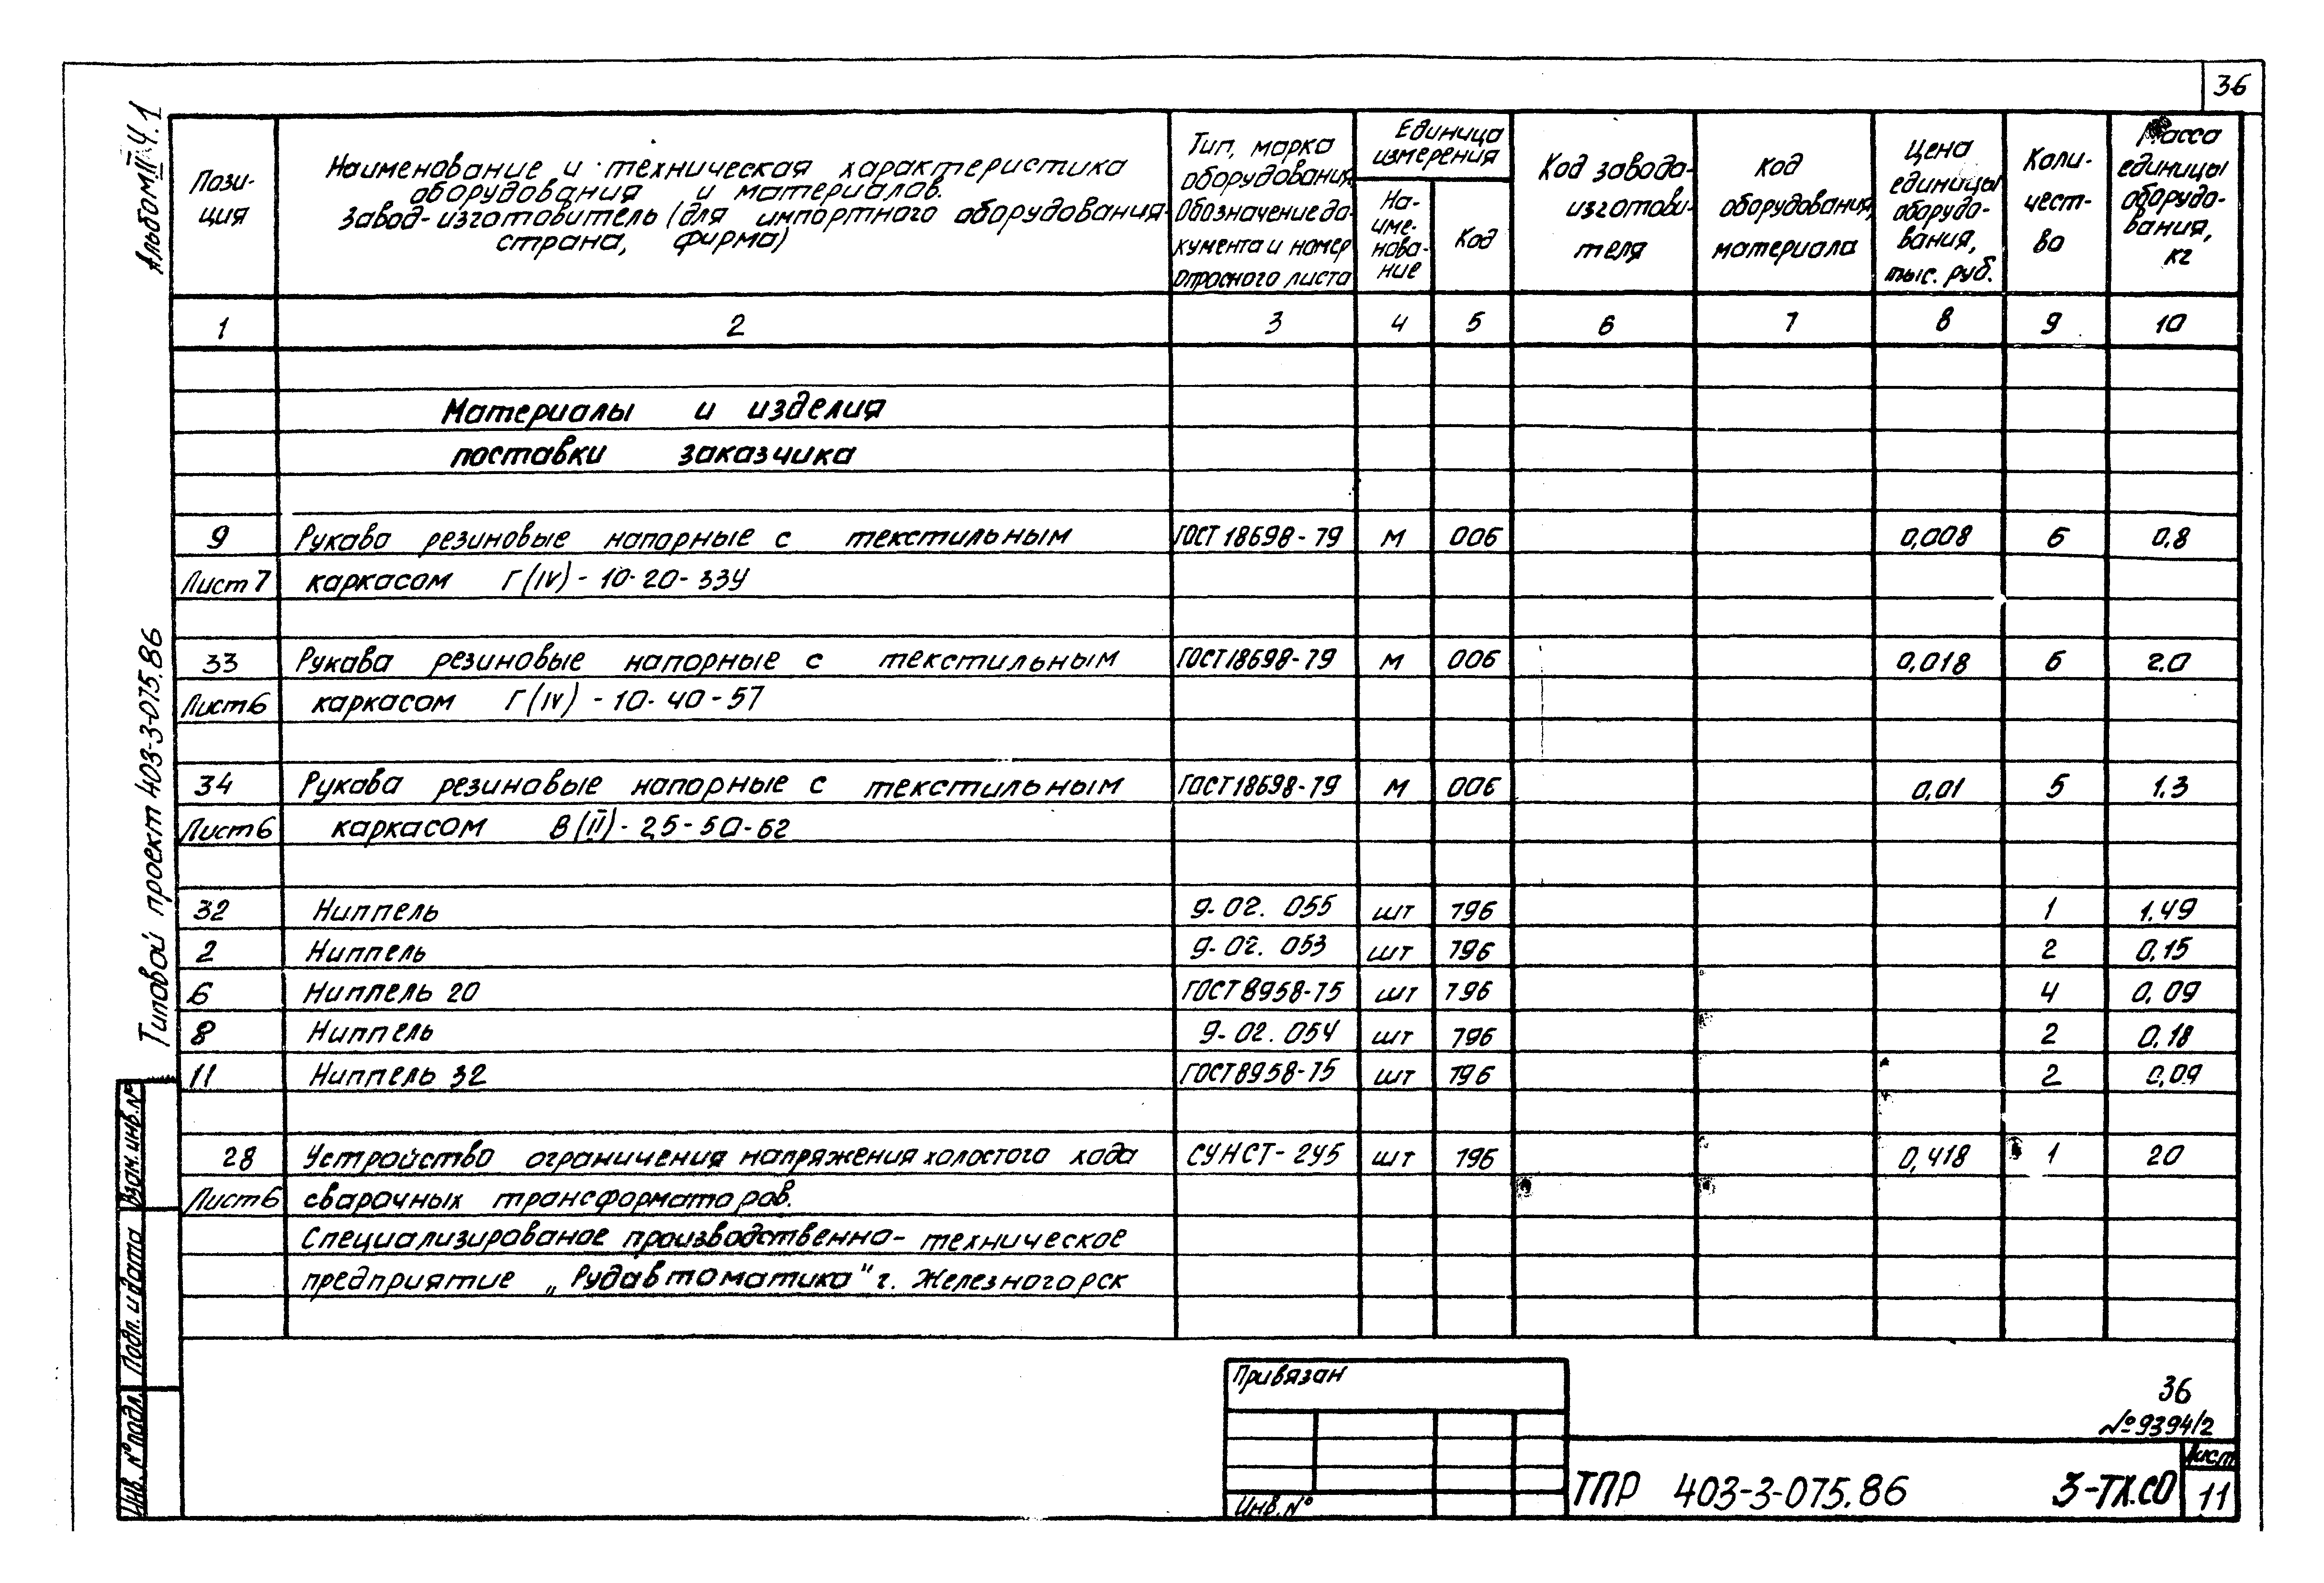 36
Альбом II ч.1
Типовой проект 403-3-075.86
Пози-
ция
Наименование и техническая характеристика
оборудования и материалов.
Завод-изготовитель (для импортного оборудования-
страна, фирма)
Тип, марка
оборудования.
Обозначение до-
кумента и номер
опросного листа
Единица
измерения
На-
име-
нова-
ние
Код
Код завода-
изготови-
теля
Код
оборудования,
материала
Цена
единицы
оборудо-
вания,
тыс. руб.
Коли-
чест-
во
Масса
единицы
оборудо-
вания,
кг
1 2 3 4 5 6 7 8 9 10
Материалы и изделия
поставки заказчика
9 Рукава резиновые напорные с текстильным ГОСТ 18698-79 м 006 0,008 6 0,8
Лист 7 каркасом Г(IV)-10-20-33У
33 Рукава резиновые напорные с текстильным ГОСТ 18698-79 м 006 0,018 6 2.0
Лист 6 каркасом Г(IV)-10-40-57
34 Рукава резиновые напорные с текстильным ГОСТ 18698-79 м 006 0,01 5 1.3
Лист 6 каркасом В(II)-2,5-50-62
32 Ниппель 9-02. 055 шт 796 1 1.49
2 Ниппель 9-02. 053 шт 796 2 0,15
6 Ниппель 20 ГОСТ 8958-75 шт 796 4 0,09
8 Ниппель 9-02. 054 шт 796 2 0,18
11 Ниппель 32 ГОСТ 8958-75 шт 796 2 0,09
28 Устройство ограничения напряжения холостого хода СУНСТ-2У5 шт 796 0,418 1 20
Лист 6 сварочных трансформаторов.
Специализированое производственно-техническое
предприятие „Рудавтоматика" г. Железногорск
Взам. инв. №
Подп. и дата
Инв. № подл.
Привязан
Инв. №
36
№ 9394/2
ТПР 403-3-075.86 3-ТХ.СО
Лист
11